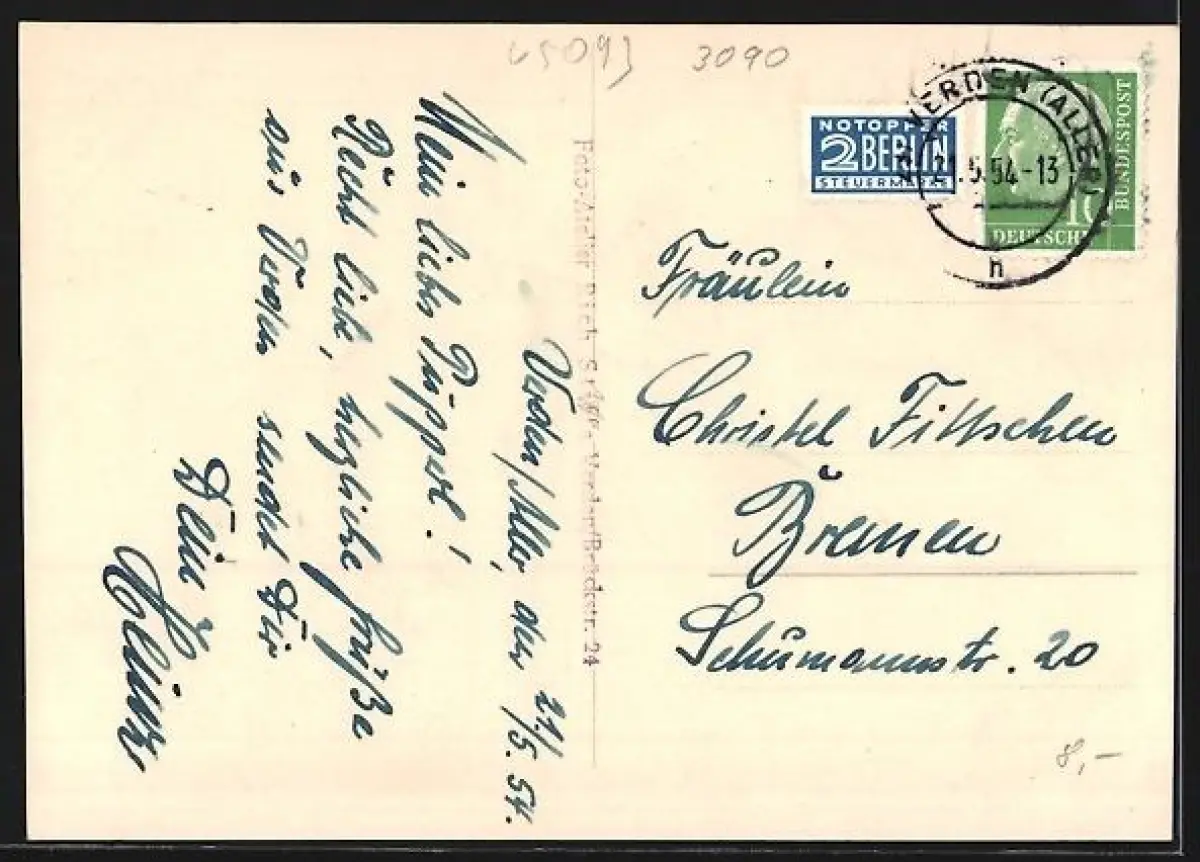 45093 3090
NOTOPFER
2 BERLIN
STEUERMARKE
VERDEN (ALLER)
21.5.54-13
h
10
DEUTSCHE
BUNDESPOST
Fräulein
Christel Fittschen
Bremen
Schumannstr. 20
8,-
Foto-Atelier Verden/Brückstr. 24
Verden/Aller, den 21./5.54.
Mein liebes Püppchen!
Recht liebe, herzliche Grüße
aus Verden sendet Dir
Dein